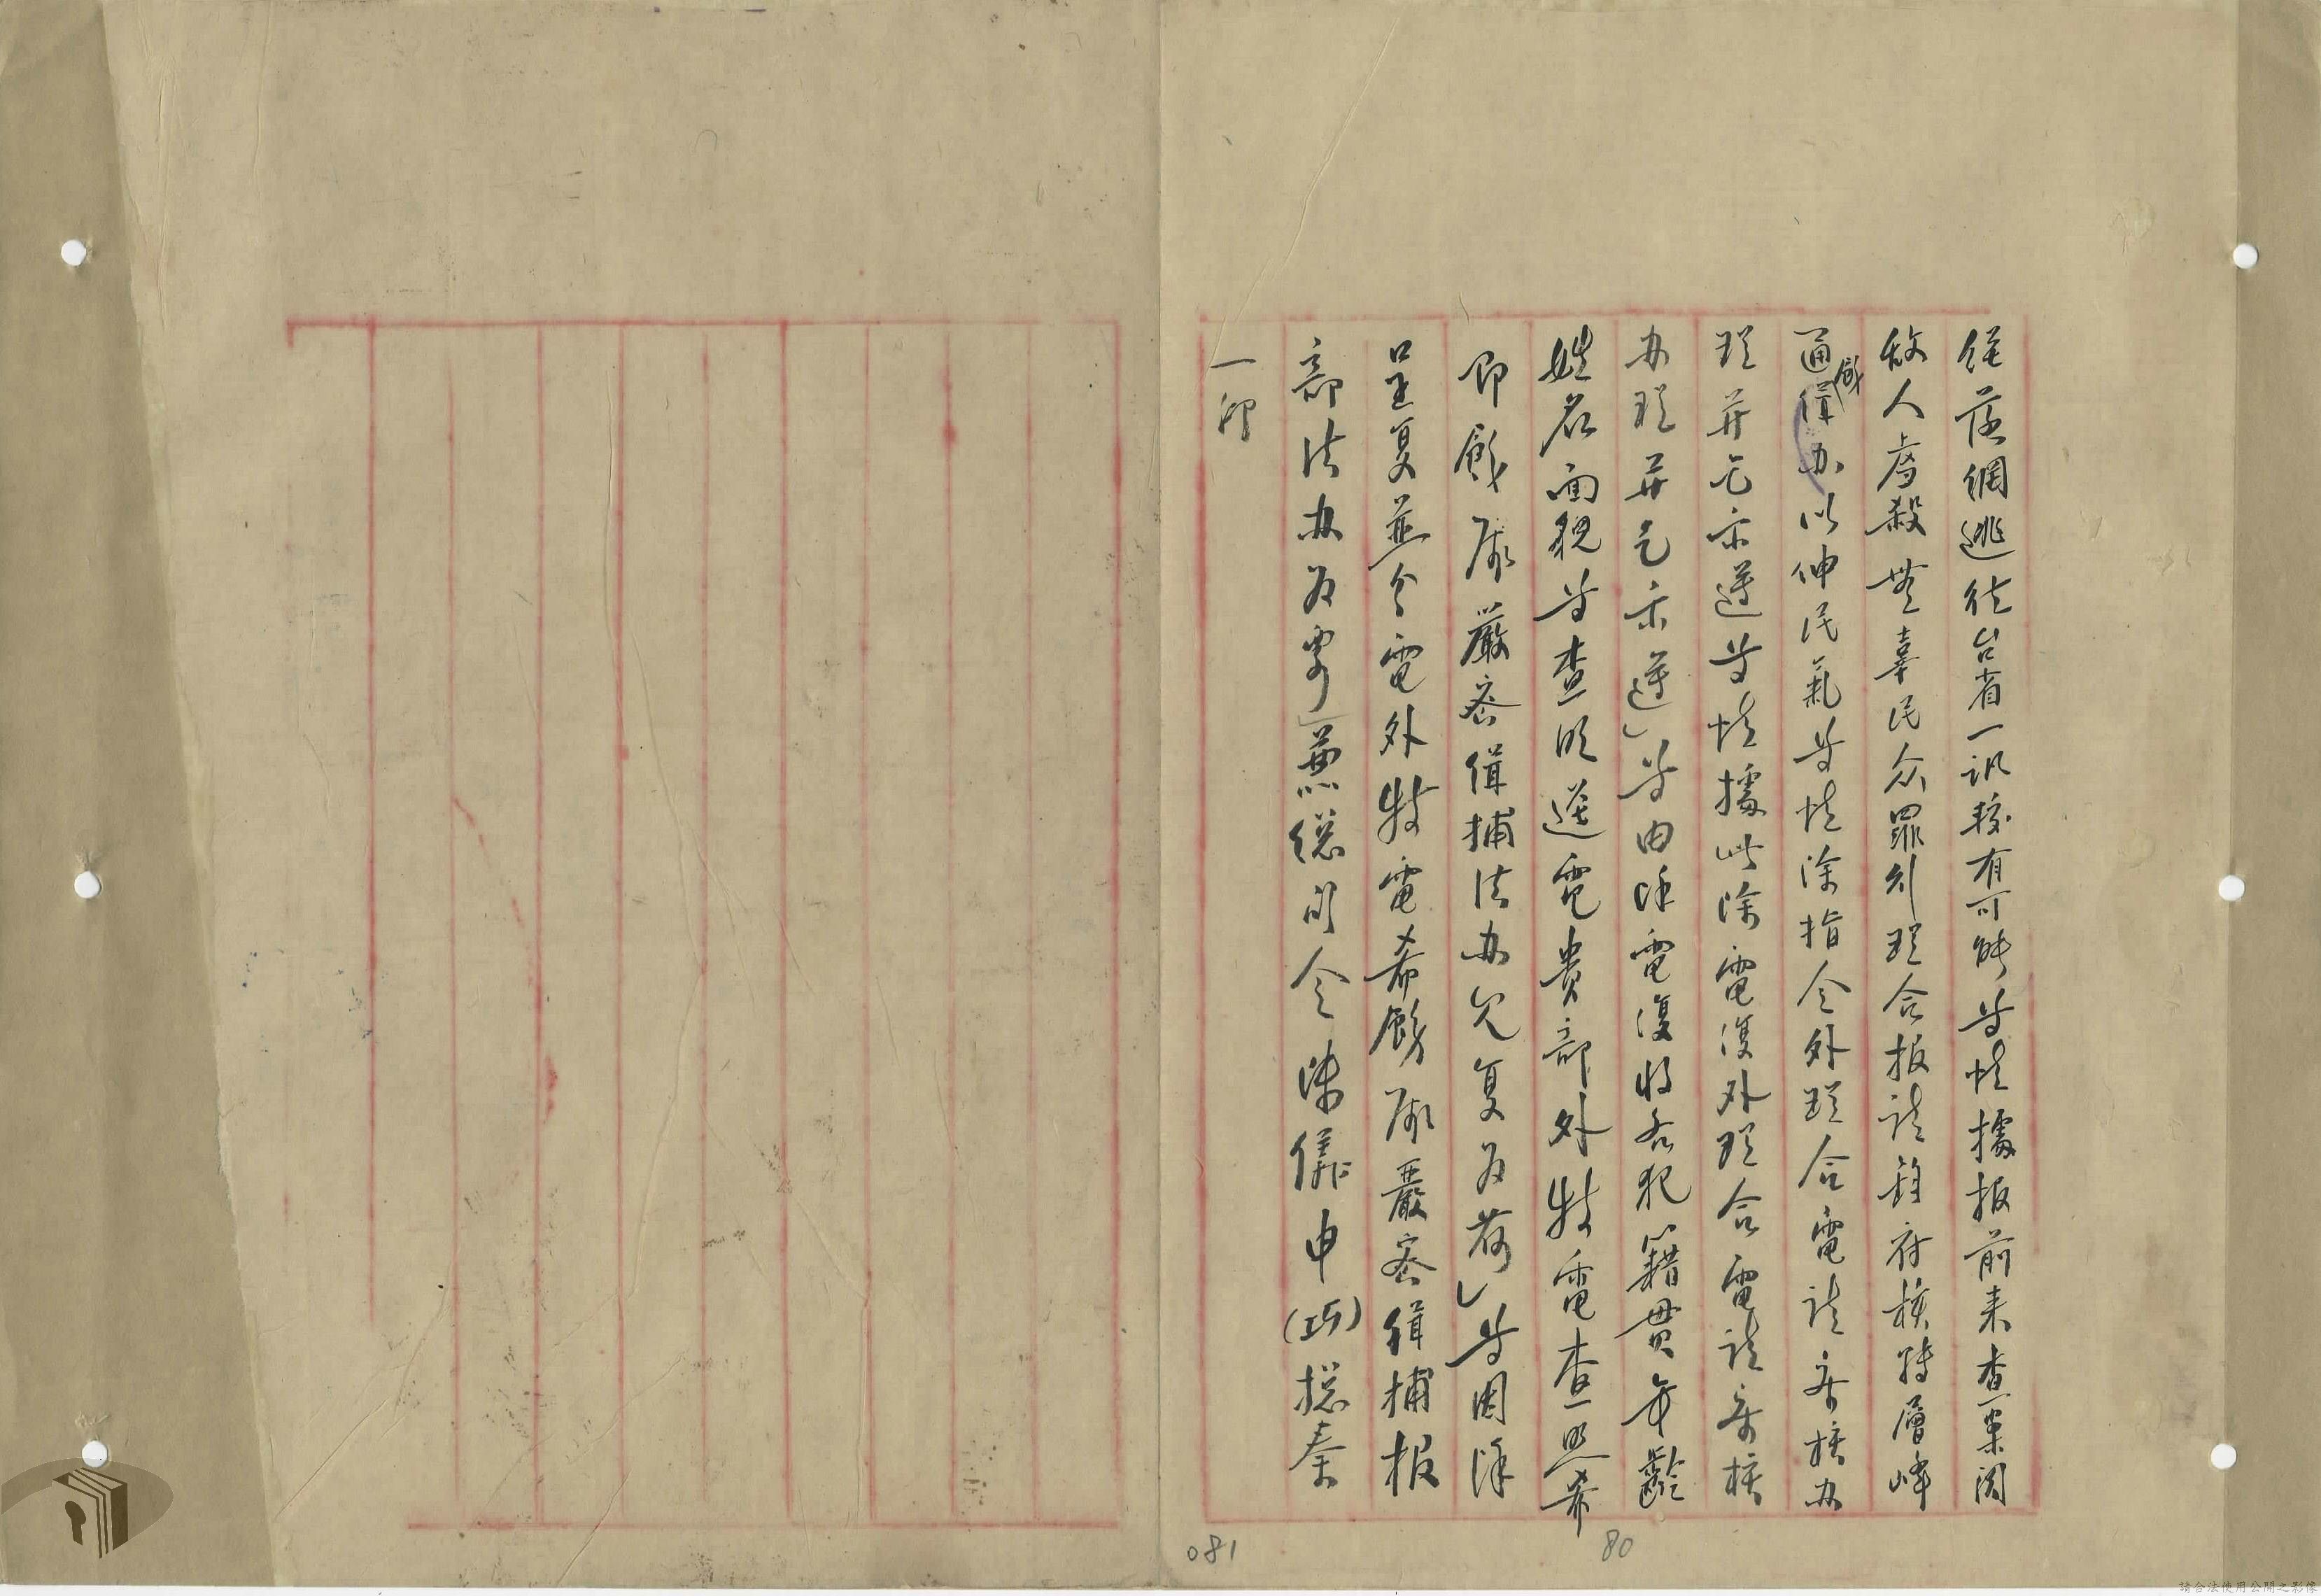 從落網逃往台省一訊較有可能等情據报前来查案関
敌人虐殺無辜民众罪刑理合报請鈞府核轉層峰
通飭緝办以伸民氣等情除指令外理合電請察核办
理并乞示遵等情據此除電復外理合電請察核
办理并乞示遵」等由准電復将各犯籍貫年齡
姓名面貌等查明送電貴部外特電查照希
即飭屬嚴密緝捕法办見复为荷」等因准
呈复並分電外特電希飭屬嚴密緝捕报
部法办为要」兼總司令陳儀申(巧)總秦
一印
081
80
請合法使用公開之影像